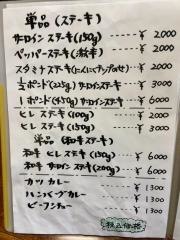 単品(ステーキ)
サーロインステーキ(150g) ---- ¥ 2000
ペッパーステーキ(激辛) ---- ¥ 2000
スタミナステーキ(にんにくチップのせ) ---- ¥ 2000
½ポンド(225g)サーロインステーキ ---- ¥ 3000
1ポンド(450g)サーロインステーキ ---- ¥ 6000
ヒレステーキ(100g) ---- ¥ 2000
ヒレステーキ(150g) ---- ¥ 3000
単品(和牛ステーキ)
和牛ヒレステーキ(150g) ---- ¥ 6000
和牛サーロインステーキ(200g) ---- ¥ 6000
カツカレー ---- ¥ 1300
ハンバーグカレー ---- ¥ 1300
ビーフシチュー ---- ¥ 1300
税込価格